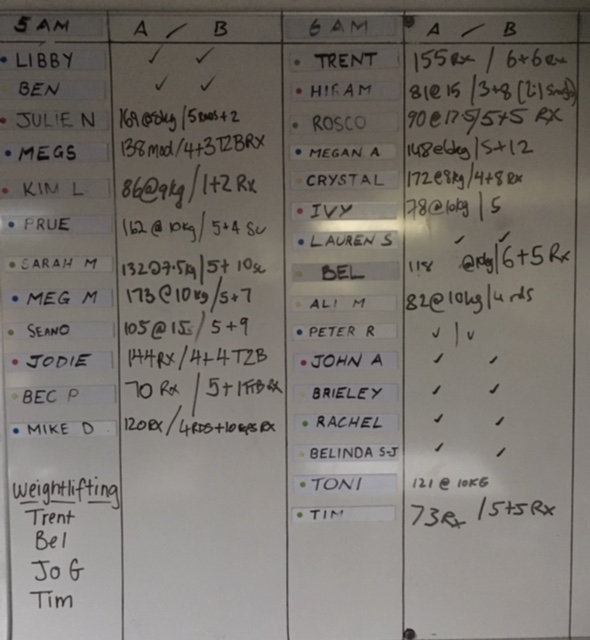 5 AM A / B
LIBBY ✓ ✓
BEN ✓ ✓
JULIE N 169@8kg/5rnds+2
MEGS 138 mod/4+3 T2B RX
KIM L 86@9kg/1+2 Rx
PRUE 162@10kg/5+4 Sc
SARAH M 132@7.5kg/5+10sc
MEG M 173@10kg/5+7
SEANO 105@15/5+9
JODIE 144RX/4+4T2B
BEC P 70 Rx/5+1 RX
MIKE D 120RX/4RDS+10reps RX
Weightlifting
Trent
Bel
Jo G
Tim
6 AM A / B
TRENT 155Rx/6+6Rx
HIRAM 81@15/3+8
ROSCO 90@17.5/5+5 RX
MEGAN A 148@6kg/5+12
CRYSTAL 172@8kg/4+8Rx
IVY 78@10kg/5
LAUREN S ✓ ✓
BEL 118 @10kg/6+5 Rx
ALI M 82@10kg/4 rds
PETER R ✓ | ✓
JOHN A ✓ ✓
BRIELEY ✓ ✓
RACHEL ✓ ✓
BELINDA S-J ✓ ✓
TONI 121@10KG
TIM 73Rx/5+5Rx